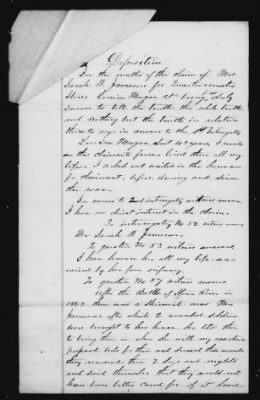 Deposition
In the matter of the claim of Mrs
Sarah N. Jameson for Quartermaster
Stores Lucius Morgan Col being duly
sworn to tell the truth the whole truth
and nothing but the truth in relation
thereto says in answer to the 1st Interrogatory
Lucius Morgan, Col 40 years, I work
on the claimants farm lived there all my
before
for claimant, before, during and since
the war
In answer to 2nd interrogatory witness answers
I have no direct interest in the claim.
To interrogatory No 52 witness answers
Mrs Sarah N. Jameson.
To question No 53 witness answered
I have known her all my life was
raised by her from infancy.
To question No 57 witness answers
After the Battle of Stone River in
1863 there was a skirmish near Mrs
Jamesons after which 2 wounded soldiers
were brought to her house she told them
to bring them in when she with my assistance
prepared beds for them and dressed their wounds
they remained there 2 days and nights
and said themselves that they could not
have been better cared for if at home